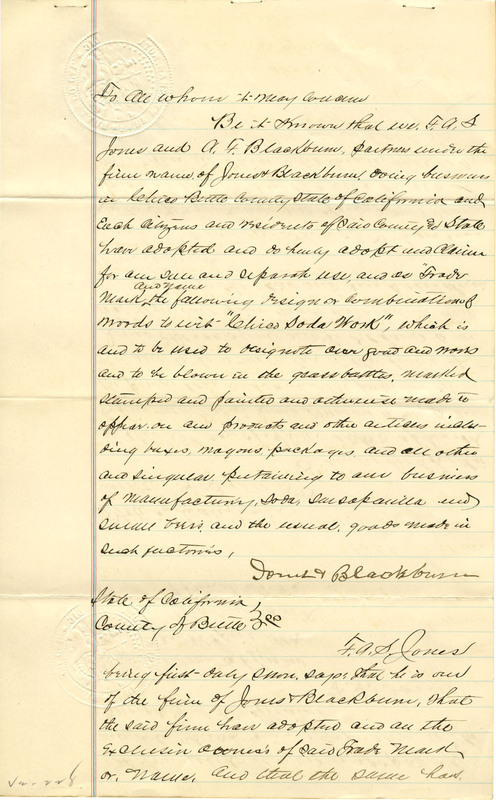 To All whom it may Concern
Be it Known that we, F. A. S.
Jones and A. F. Blackburn, partners under the
firm name, of Jones & Blackburn, doing business
in Chico Butte County State of California and
Each Citizens and residents of said County & State
have adopted and do hereby adopt and Claim
for our own and separate use, and as "Trade
and Name
Mark, the following design or combination of
words to wit "Chico Soda Work", which is
and to be used to designate our good and works
and to be blown in the glass bottles, marked
stamped and painted and otherwise made to
appear on our products and other articles inclu-
ding boxes, wagons, packages, and all other
and singular pertaining to our business
of manufacturing, Soda, Sarsaparilla and
and the usual, goods made in
such factories,
Jones & Blackburn
State of California,
County of Butte } SS
F. A. S. Jones
being first duly sworn, says: that he is one
of the firm of Jones & Blackburn, that
the said firm have adopted and are the
Exclusive owners of said Trade Mark
or, Name, and that the same has